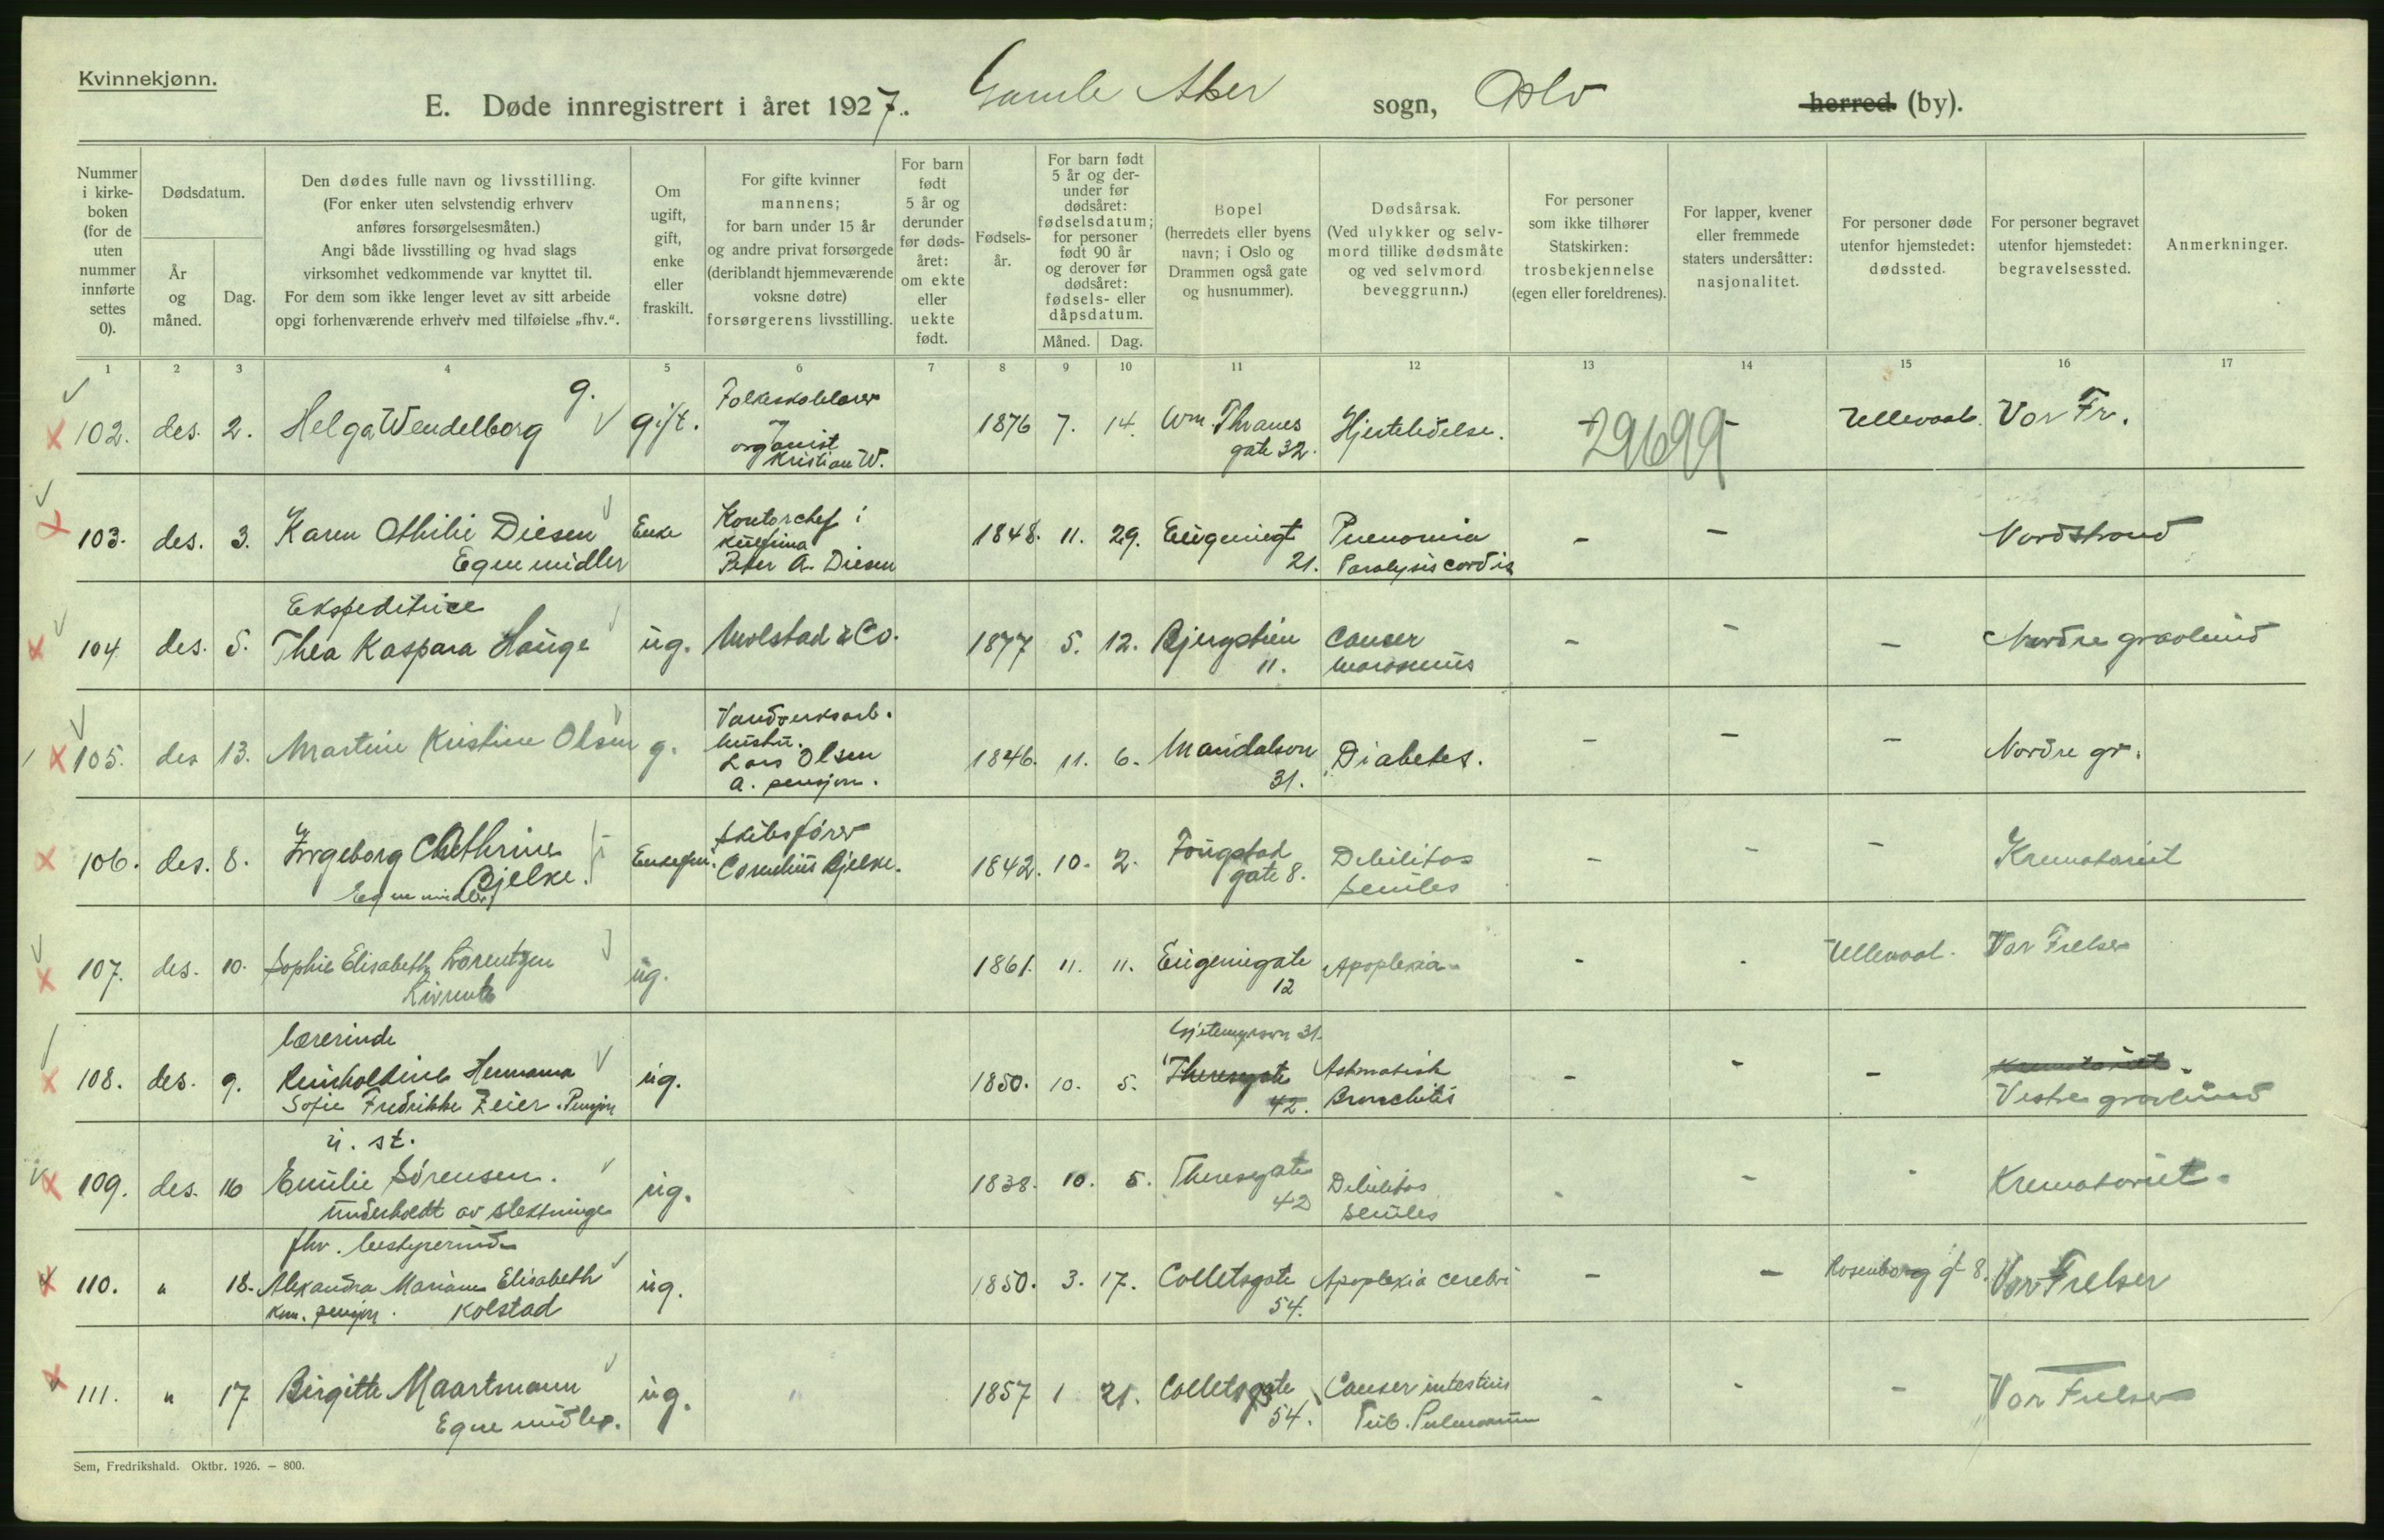 Kvinnekjønn.
E. Døde innregistrert i året 1927. Gamle Aker sogn, Oslo herred (by).
Nummer i kirke-boken (for de uten nummer innførte settes 0).
Dødsdatum.
År og måned.
Dag.
Den dødes fulle navn og livsstilling.
(For enker uten selvstendig erhverv
anføres forsørgelsesmåten.)
Angi både livsstilling og hvad slags
virksomhet vedkommende var knyttet til.
For dem som ikke lenger levet av sitt arbeide
opgi forhenværende erhverv med tilføielse „fhv.“.
Om ugift, gift, enke eller fraskilt.
For gifte kvinner
mannens;
for barn under 15 år
og andre privat forsørgede
(deriblandt hjemmeværende
voksne døtre)
forsørgerens livsstilling.
For barn født 5 år og derunder før døds-året: om ekte eller uekte født.
Fødsels-år.
For barn født 5 år og der-under før dødsåret: fødselsdatum; for personer født 90 år og derover før dødsåret: fødsels- eller dåpsdatum.
Måned. Dag.
Bopel
(herredets eller byens
navn; i Oslo og
Drammen også gate
og husnummer).
Dødsårsak.
(Ved ulykker og selv-
mord tillike dødsmåte
og ved selvmord
beveggrunn.)
For personer
som ikke tilhører
Statskirken:
trosbekjennelse
(egen eller foreldrenes).
For lapper, kvener
eller fremmede
staters undersåtter:
nasjonalitet.
For personer døde
utenfor hjemstedet:
dødssted.
For personer begravet
utenfor hjemstedet:
begravelsessted.
Anmerkninger.
1 2 3 4 5 6 7 8 9 10 11 12 13 14 15 16 17
102. des. 2. Helga Wendelborg g. gift. Folkeskolelærer
organist
Kristian W. 1876 7. 14. Wm. Thranes
gate 32. Hjertelidelse. - 29699 - Ullevaal. Vor Fr.
103. des. 3. Karen Othilie Diesen
Egne midler Enke Kontorchef i
Peter A. Diesen 1848. 11. 29. Eugeniegt
21. Pneumonia
Paralysis cordis - - Nordstrand
Ekspeditrice
104 des. 5. Thea Kaspara Hauge ug. Molstad & Co. 1877 5. 12. Bjergstien
11. Cancer
Marasmus - - - Nordre gravlund
105. des 13. Martine Kristine Olsen g. Vandverksarb.
Lars Olsen
A. pensjon. 1846. 11. 6. Maridalsvn
31. Diabetes. - - - Nordre gr.
106. des. 8. Ingeborg Cathrine
Bjelke.
Egne midler Enkefru. Skibsfører
Cornelius Bjelke. 1842. 10. 2. Tougstad
gate 8. Debilitas
seniles - - - Krematoriet
107. des. 10. Sophie Elisabeth Lorentzen
Livrente ug. 1861. 11. 11. Eugeniegate
12 Apoplexia - - Ullevaal. Vor Frelser
lærerinde
108. des. 9. Reinholdine Hermana
Sofie Fredrikke Zeier. Pensjon ug. 1850. 10. 5. Gjetemyrsvn 31.
Theresegate
42. Astmatisk
Bronchitis - - - Krematoriet.
Vestre gravlund
u. st.
109. des. 16 Emilie Sørensen.
Underholdt av slektninge ug. 1838. 10. 5. Theresegate
42 Debilitas
seniles - - - Krematoriet.
fhv. bestyrerinde
110. " 18. Alexandra Mariane Elisabeth
Kom. pensjon. Kolstad ug. 1850. 3. 17. Colletsgate
54. Apoplexia cerebri - - Rosenborg gt 8. Vor Frelser
111. " 17 Birgitte Maartmann
Egne midler. ug. " 1857 1 21. Colletsgate
54. Cancer intestins
Tub. Pulmonum - - - Vor Frelser
Sem, Fredrikshald. Oktbr. 1926. — 800.